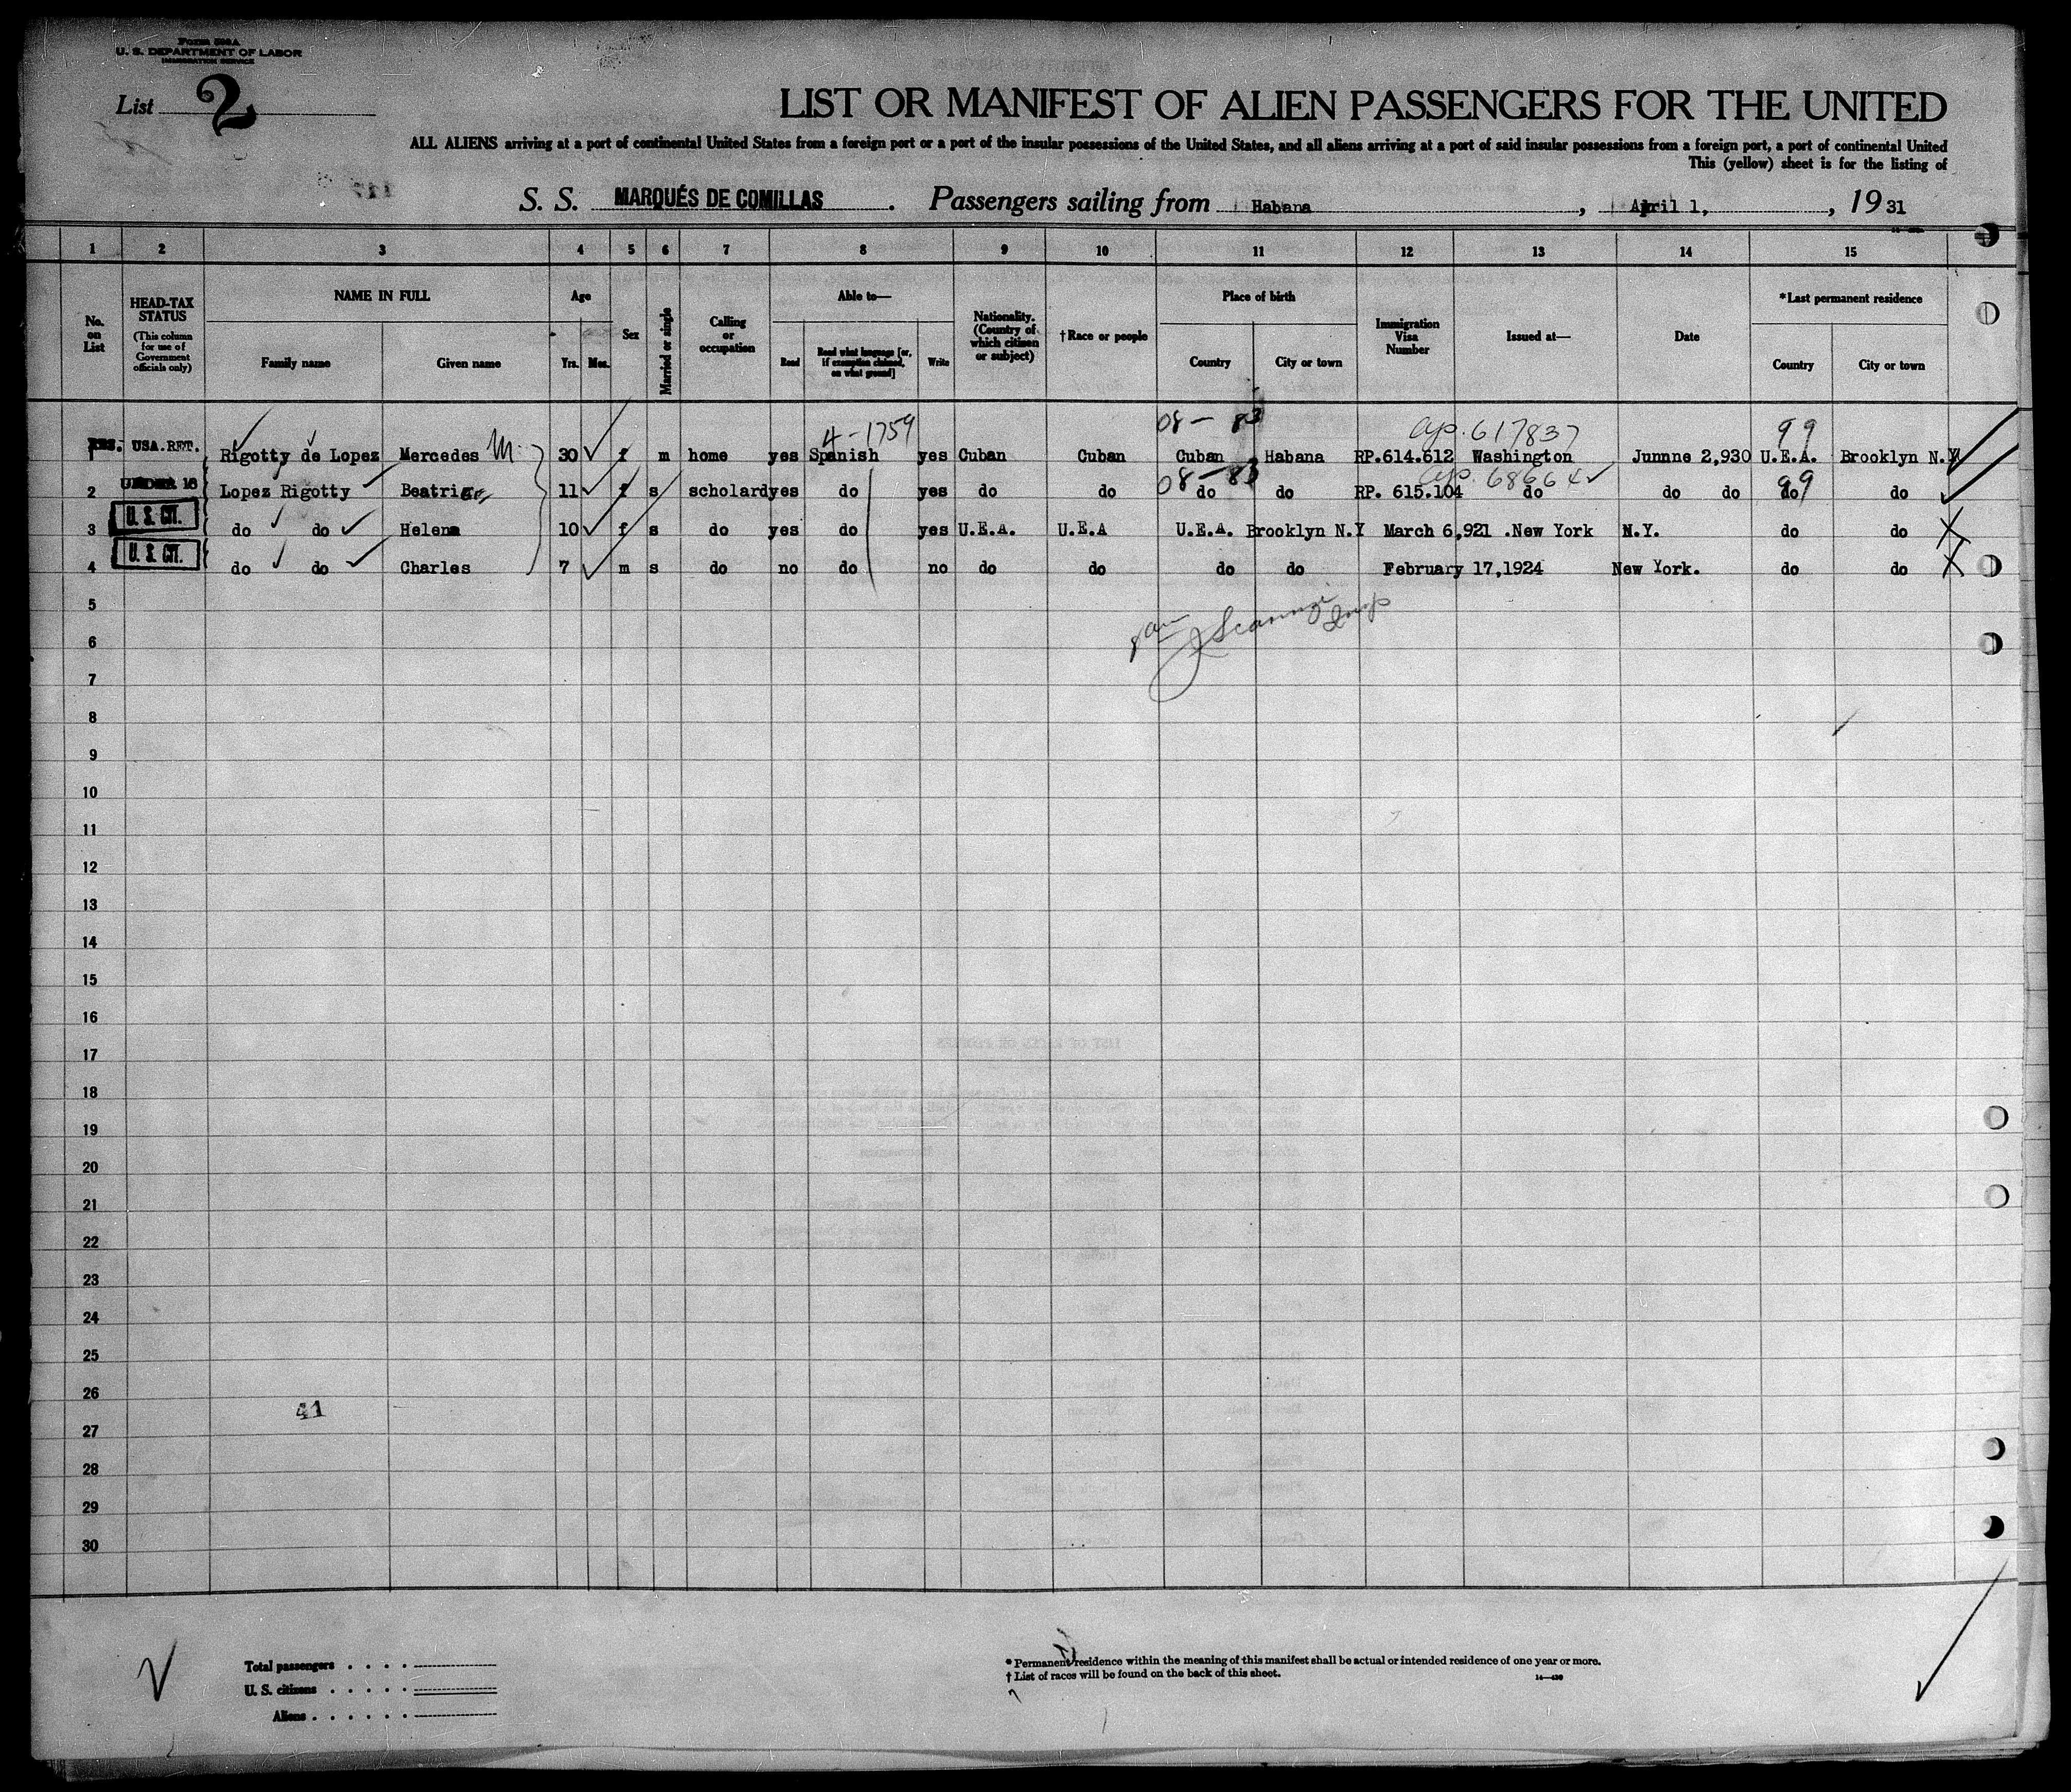 Form 500A
U. S. DEPARTMENT OF LABOR
IMMIGRATION SERVICE
List 2
LIST OR MANIFEST OF ALIEN PASSENGERS FOR THE UNITED
ALL ALIENS arriving at a port of continental United States from a foreign port or a port of the insular possessions of the United States, and all aliens arriving at a port of said insular possessions from a foreign port, a port of continental United
This (yellow) sheet is for the listing of
S. S. MARQUÉS DE COMILLAS. Passengers sailing from Habana, April 1, 1931
1 2 3 4 5 6 7 8 9 10 11 12 13 14 15
No. on List
HEAD-TAX STATUS (This column for use of Government officials only)
NAME IN FULL
Family name Given name
Age
Yrs. Mos.
Sex
Married or single
Calling or occupation
Able to—
Read Read what language [or, if exemption claimed, on what ground] Write
Nationality. (Country of which citizen or subject)
†Race or people
Place of birth
Country City or town
Immigration Visa Number
Issued at—
Date
*Last permanent residence
Country City or town
4-1759 08 - 83 ap. 617837 99
1 USA.RET. Rigotty de Lopez Mercedes M. 30 f m home yes Spanish yes Cuban Cuban Cuban Habana RP.614.612 Washington Junnne 2,930 U.E.A. Brooklyn N.Y
08-83 99
2 UNDER 16 Lopez Rigotty Beatriz 11 f s scholard yes do yes do do do do RP. 615.104 do do do do do
3 U. S. CIT. do do Helena 10 f s do yes do yes U.E.A. U.E.A U.E.A. Brooklyn N.Y March 6,921 .New York N.Y. do do
4 U. S. CIT. do do Charles 7 m s do no do no do do do do February 17,1924 New York. do do
5
6
7
8
9
10
11
12
13
14
15
16
17
18
19
20
21
22
23
24
25
26
41
27
28
29
30
Total passengers . . . .
U. S. citizens . . . . .
Aliens . . . . . .
* Permanent residence within the meaning of this manifest shall be actual or intended residence of one year or more.
† List of races will be found on the back of this sheet.